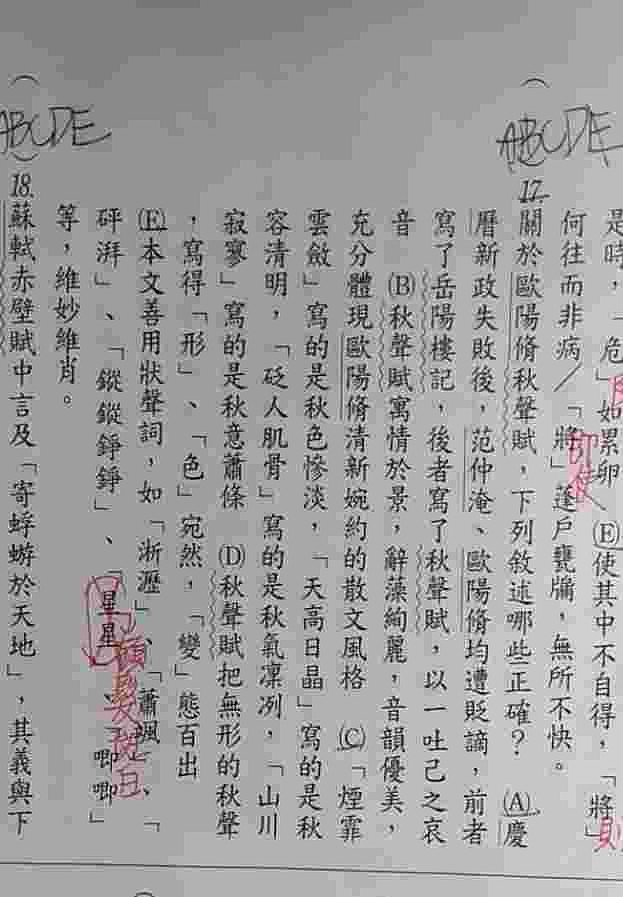 是時,「危」如累卵 (E)使其中不自得,「將」
則
何往而非病/「將」蓬戶甕牖,無所不快。
即使
( ABCDE
17.關於歐陽脩秋聲賦,下列敘述哪些正確? (A)慶
曆新政失敗後,范仲淹、歐陽脩均遭貶謫,前者
寫了岳陽樓記,後者寫了秋聲賦,以一吐己之哀
音 (B)秋聲賦寓情於景,辭藻絢麗,音韻優美,
充分體現歐陽脩清新婉約的散文風格 (C)「煙霏
雲斂」寫的是秋色慘淡,「天高日晶」寫的是秋
容清明,「砭人肌骨」寫的是秋氣凜冽,「山川
寂寥」寫的是秋意蕭條 (D)秋聲賦把無形的秋聲
,寫得「形」、「色」宛然,「變」態百出
(E)本文善用狀聲詞,如「淅瀝」、「蕭颯」、「
砰湃」、「鏦鏦錚錚」、「星星」、「唧唧」
等,維妙維肖。
( ABCDE )
18.蘇軾赤壁賦中言及「寄蜉蝣於天地」,其義與下